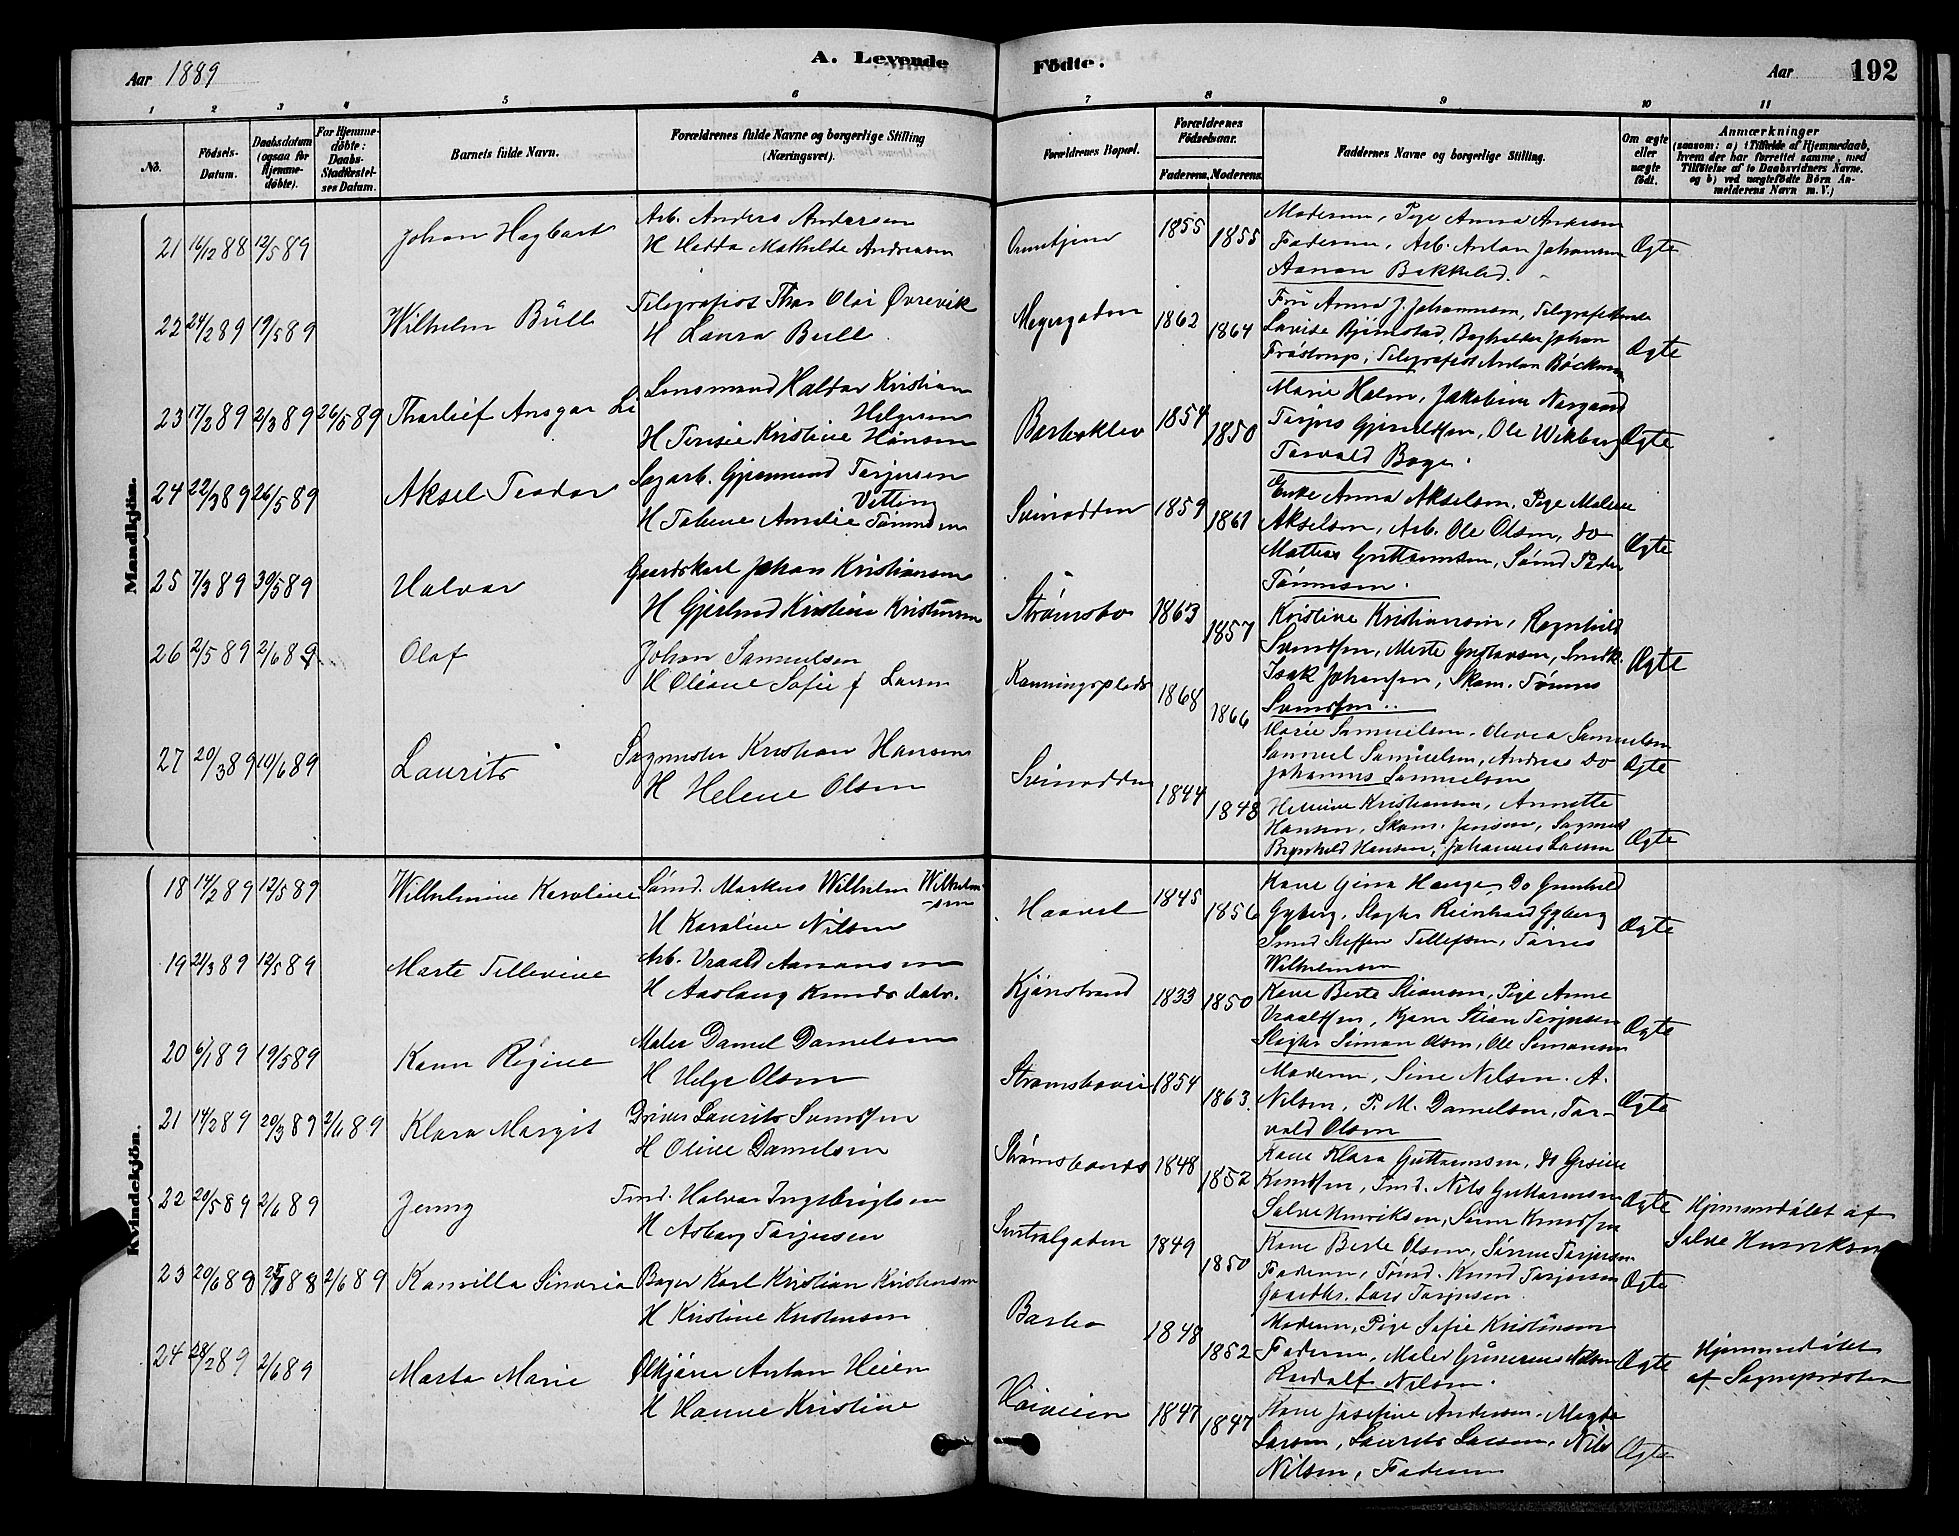 Aar 1889
A. Levende
Födte.
Aar
192
1 2 3 4 5 6 7 8 9 10 11
No.
Födsels-Datum.
Daabsdatum (ogsaa for Hjemme-døbte).
For Hjemme-døbte: Daabs-Stadfæstel-ses Datum.
Barnets fulde Navn.
Forældrenes fulde Navne og borgerlige Stilling (Næringsvei).
Forældrenes Bopæl.
Forældrenes Födselsaar.
Faderens. Moderens.
Faddernes Navne og borgerlige Stilling.
Om ægte eller uægte født.
Anmærkninger
(saasom: a) i Tilfælde af Hjemmedaab, hvem der har forrettet samme, med Tilføielse af to Daabsvidners Navne. og b) ved uægtefødte Börn An-melderens Navn m. V.)
Mandkjön.
21 16/12 88 12/5 89 Johan Hagbart Arb. Anders Andersen 1855 1855 Moderen, Pige Anna Andersen
H Hedda Mathilde Andreasen Faderen, Arb. Anton Johansen Ægte
Aanon Bakkelid.
22 24/2 89 19/5 89 Wilhelm Bull Telegrafist Thos Olai Øvrevik 1862 1864 Fru Anna J. Johannesen, Telegrafistinde
H Laura Bull Lovise Bjørnstad, Bogholder Johan Ægte
Frøstrup, Telegrafist Anton Böckman
23 17/2 89 2/3 89 26/5 89 Thorleif Ansgar Li Lensmand Haldor Kristian Helgesen Barboklev 1854 1850 Marie Holm, Jakobine Norgaard
H Terisie Kristine Hansen Terjus Gjeruldsen, Ole Wikborg Ægte
Torvald Boge.
24 22/3 89 26/5 89 Aksel Teodor Sagarb. Gjermund Terjesen Vetting Svinodden 1859 1861 Enke Anna Akselsen, Pige Malene
H Tolene Amalie Tønnesen Akselsen, Arb. Ole Olsen, do
Mattias Guttormsen, Sømd Peder Ægte
Tønnesen.
25 7/3 89 30/5 89 Halvor Gaardskarl Johan Kristiansen Strømsbo 1863 1857 Kristine Kristiansen, Ragnhild
H Gjerlund Kristine Kristensen Svendsen, Merte Gustavsen, Snedk. Ægte
Isak Johansen, Skom. Tønnes
Svendsen.
26 2/5 89 2/6 89 Olaf Johan Samuelsen Kanningsplads 1868 1866 Marie Samuelsen, Olevia Samuelsen
H Oliane Sofie f Larsen Samuel Samuelsen, Andreas do Ægte
Johannes Samuelsen
27 20/3 89 10/6 89 Laurits Sagmester Kristian Hansen Svinodden 1844 1848 Helene Kristiansen, Annette
H Helene Olsen Hansen, Skom. Jensen, Sagmest
Hansen, Johannes Larsen Ægte
Kvindekjön.
18 14/2 89 12/5 89 Wilhelmine Karoline Sømd. Markus Wilhelm Wilhelm-sen Haavet 1845 1856 Kone Gina Hauge, Do Gunhild
H Karoline Nilsen Gyberg, Slagter Reinhard Gyberg Ægte
Smed Steffen Tellefsen, Tønnes
Wilhelmsen
19 21/3 89 12/5 89 Marte Tellevine Arb. Vraald Aanonsen Kjønstrand 1833 1850 Kone Berte Steansen, Pige Anne
H Aaslaug Knudsdatr. Vraaldsen, Kjører Stean Terjesen Ægte
Slagter Simon Olsen, Ole Simonsen
20 6/1 89 19/5 89 Karen Regine Maler Daniel Danielsen Strømsboveien 1854 1863. Moderen, Sine Nilsen. A.
H Helga Olsen Nilsen, P. M. Danielsen, Tor- Ægte
vald Olsen
21 14/2 89 20/3 89 2/6 89 Klara Margit Driver Laurits Svendsen Strømsboneds 1848 1852 Kone Klara Guttormsen, do Gusine
H Oline Danielsen Knudsen, Tmd. Nils Guttormsen Ægte Hjemmedøbt af
Salve Henriksen, Søren Knudsen Salve Henriksen
22 20/5 89 2/6 89 Jenny Tmd. Halvor Ingebrigtsen Sentralgaden 1849 1850 Kone Berte Olsen, Sørine Terjesen
H Asborg Terjesen Faderen, Tømd. Knud Terjesen Ægte
Gaardbr. Lars Terjesen.
23 20/6 89 25/7 88 2/6 89 Kamilla Sinoria Bager Karl Kristian Kristensen Barbo 1848 1852 Moderen, Pige Sofie Kristensen
H Kristine Kristensen Faderen, Maler Nilsen Ægte Hjemmedøbt
Randolf Nilsen. af Sognepresten
24 28/2 89 2/6 89 Marta Marie Ølkjører Anton Heien Høiveien 1847 1847 Kone Josefine Andersen, Magda
H Hanne Kristine Larsen, Laurits Larsen, Nils
Nilsen, Faderen Ægte